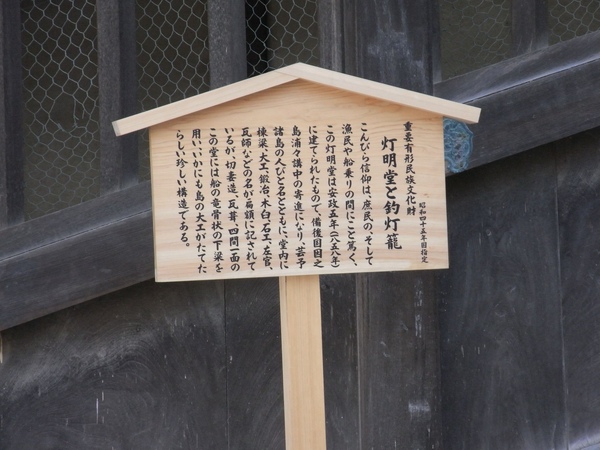 重要有形民族文化財
昭和四十五年国指定
灯明堂と釣灯籠
こんぴら信仰は、庶民の、そして
漁民や船乗りの間にこと篤く、
この灯明堂は安政五年（八五八年）
に建てられたもので、備後因因之
島浦々講中の寄進になり、芸予
諸島の人びと名とともに、堂内に
棟梁、大工鍛冶、木臼、石工、左官、
瓦師などの名が扁額に記されて
いるが、切妻造、瓦葺、四間一面の
この堂には船の竜骨状の下梁を
用い、いかにも島の大工がたてた
らしい珍しい構造である。